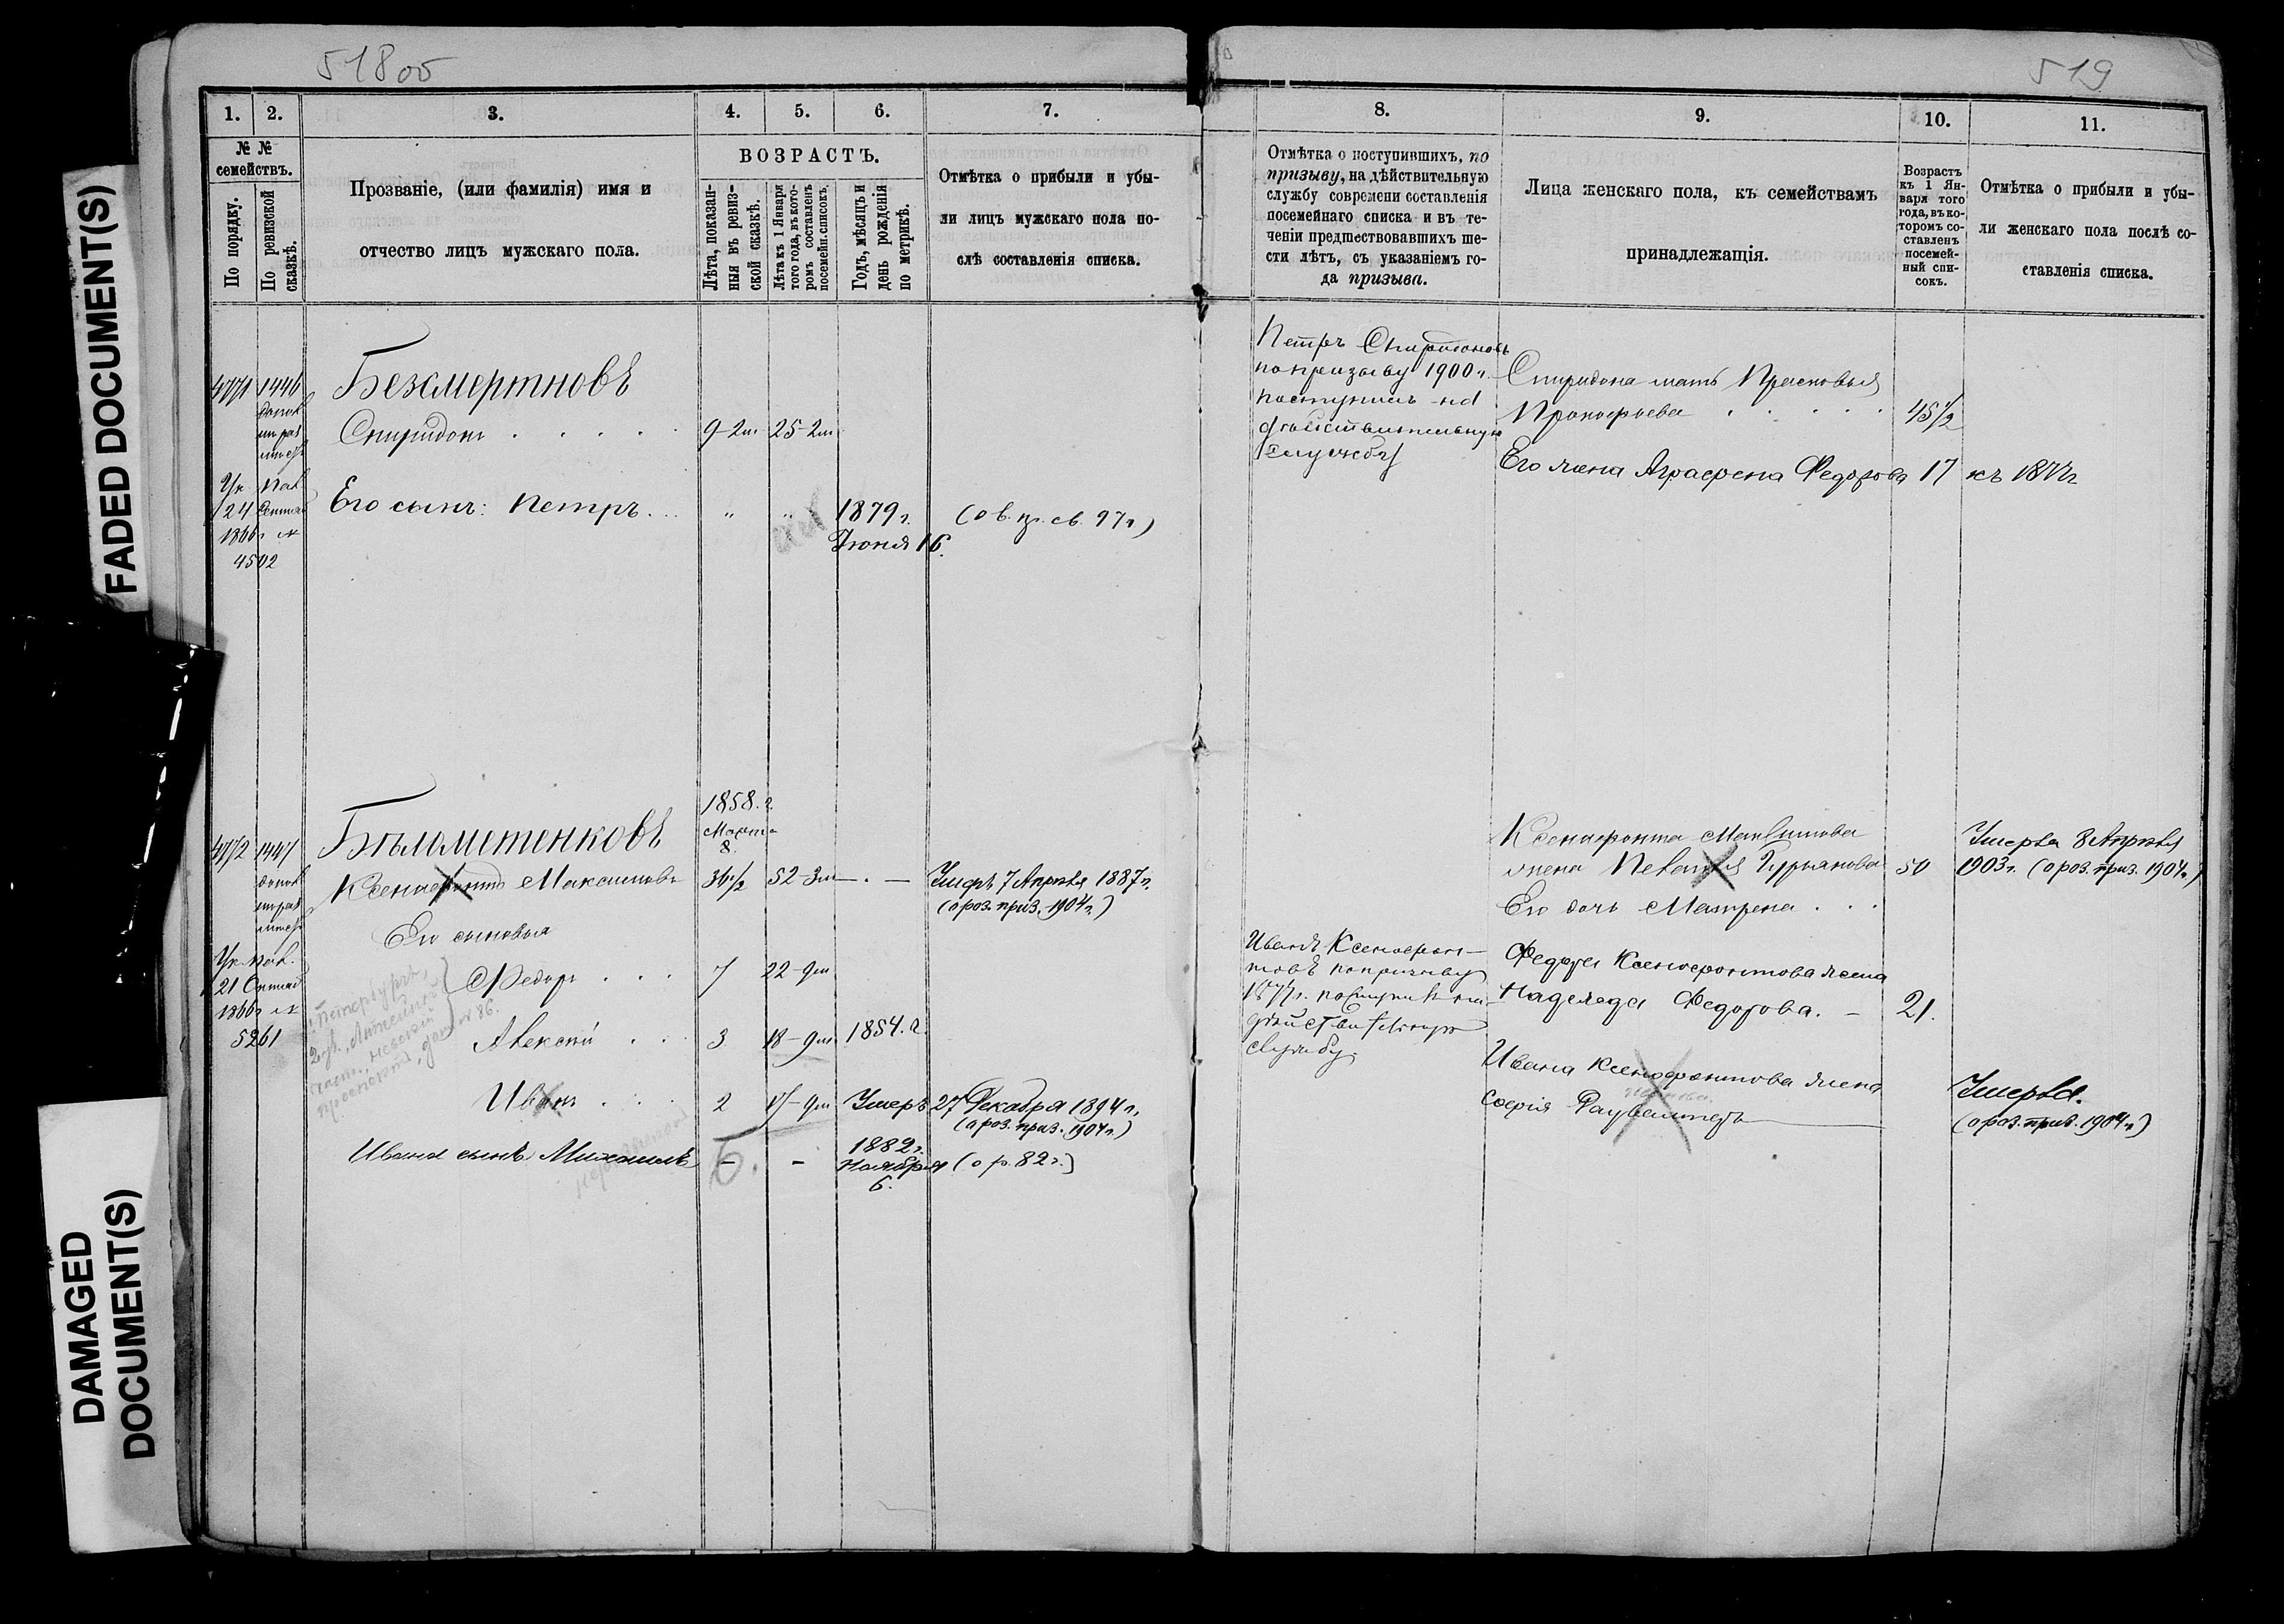 FADED DOCUMENT(S)
DAMAGED
DOCUMENT(S)
518об
1. 2. 3. 4. 5. 6. 7.
№ №
семействъ.
По порядку.
По ревизской
сказкѣ.
Прозваніе, (или фамилія) имя и
отчество лицъ мужскаго пола.
ВОЗРАСТЪ.
Лѣта, показан-
ныя въ ревиз-
ской сказкѣ.
Лѣта къ 1 Января
того года, въ кото-
ромъ составленъ
посемейн. списокъ.
Годъ, мѣсяцъ и
день рожденія
по метрикѣ.
Отмѣтка о прибыли и убы-
ли лицъ мужскаго пола по-
слѣ составленія списка.
1446 Безсмертновъ
Спиридонъ 9-2м 25-2м
Его сынъ: Петръ 1879 г.
Іюня 16.
24
1866 г
4502
1858. г.
Марта
8.
1447 Бѣлометенковъ
Ксенофонтъ Максимовъ 36½ 52-3м Умеръ 7 Апрѣля 1887 г.
(о роз. приз. 1904 г.)
Его сыновья
Федоръ 7 22-9м
21
1866 г
5261
Алексѣй 3 18-9м 1854. г.
Иванъ 2 17-9м Умеръ 27 Декабря 1894 г.
(о роз. приз. 1904 г.)
Ивана сынъ Михаилъ Б. 1882 г.
Ноября
6.
(о р. 82 г.)
519
8. 9. 10. 11.
Отмѣтка о поступившихъ, по
призыву, на дѣйствительную
службу современи составленія
посемейнаго списка и въ те-
ченіи предшествовавшихъ ше-
сти лѣтъ, съ указаніемъ го-
да призыва.
Лица женскаго пола, къ семействамъ
принадлежащія.
Возрастъ
къ 1 Ян-
варя того
года, въ ко-
торомъ со-
ставленъ
посемей-
ный спи-
сокъ.
Отмѣтка о прибыли и убы-
ли женскаго пола послѣ со-
ставленія списка.
Петръ Спиридоновъ
по призыву 1900 г.
поступилъ на
дѣйствительную
службу
Спиридона мать Прасковья
Прокофьева 45½
Его жена Аграфена Федорова 17
Ксенофонта Максимова
жена Пелагея Гурьянова 50
Умерла 8 Апрѣля
1903 г. (о роз. приз. 1904 г.)
Его дочь Матрена
Иванъ Ксенофон-
товъ по призыву
1877 г. поступилъ на
дѣйствительную
службу.
Федора Ксенофонтова жена
Надежда Федорова. 21.
Ивана Ксенофонтова жена
Софія
Умерла.
(о роз. приз. 1904 г.)